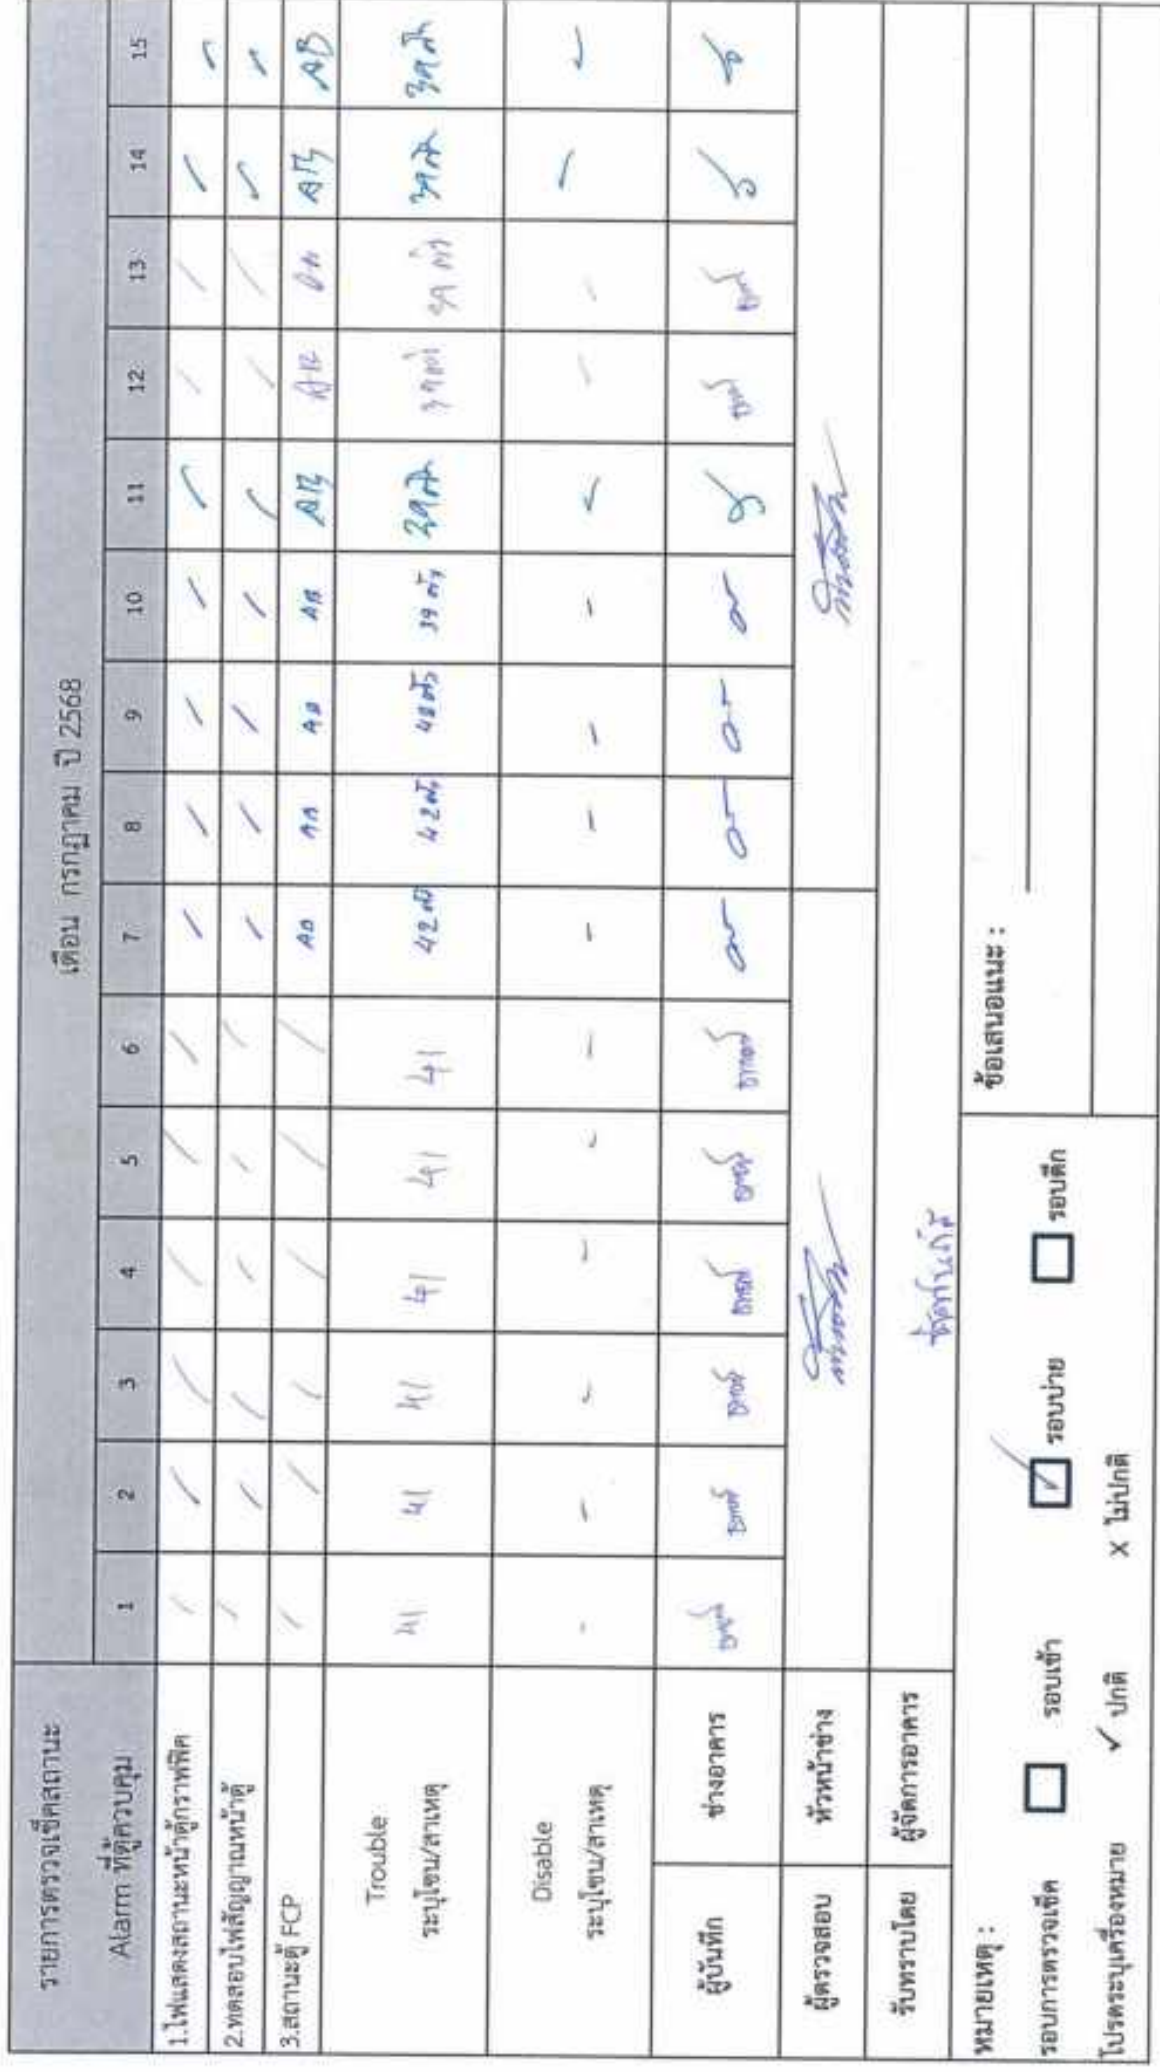 รายการตรวจเช็คสถานะ
Alarm ที่ตู้ควบคุม
เดือน กรกฎาคม ปี 2568
1 2 3 4 5 6 7 8 9 10 11 12 13 14 15
1.ไฟแสดงสถานะหน้าตู้กราฟฟิค / / / / / / / / / / / / / / /
2.ทดสอบไฟสัญญาณหน้าตู้ / / / / / / / / / / / / / / /
3.สถานะตู้ FCP / / / / / / AB AB AB AB AB AB AB AB
Trouble
ระบุโซน/สาเหตุ 41 41 41 41 41 41 42 ตัว 42 ตัว 40 ตัว 39 ตัว
Disable
ระบุโซน/สาเหตุ - - - - - - - - - - - - - - -
ผู้บันทึก ช่างอาคาร
ผู้ตรวจสอบ หัวหน้าช่าง
รับทราบโดย ผู้จัดการอาคาร
หมายเหตุ : ข้อเสนอแนะ :
รอบการตรวจเช็ค รอบเช้า ✓ รอบบ่าย รอบดึก
โปรดระบุเครื่องหมาย ✓ ปกติ x ไม่ปกติ